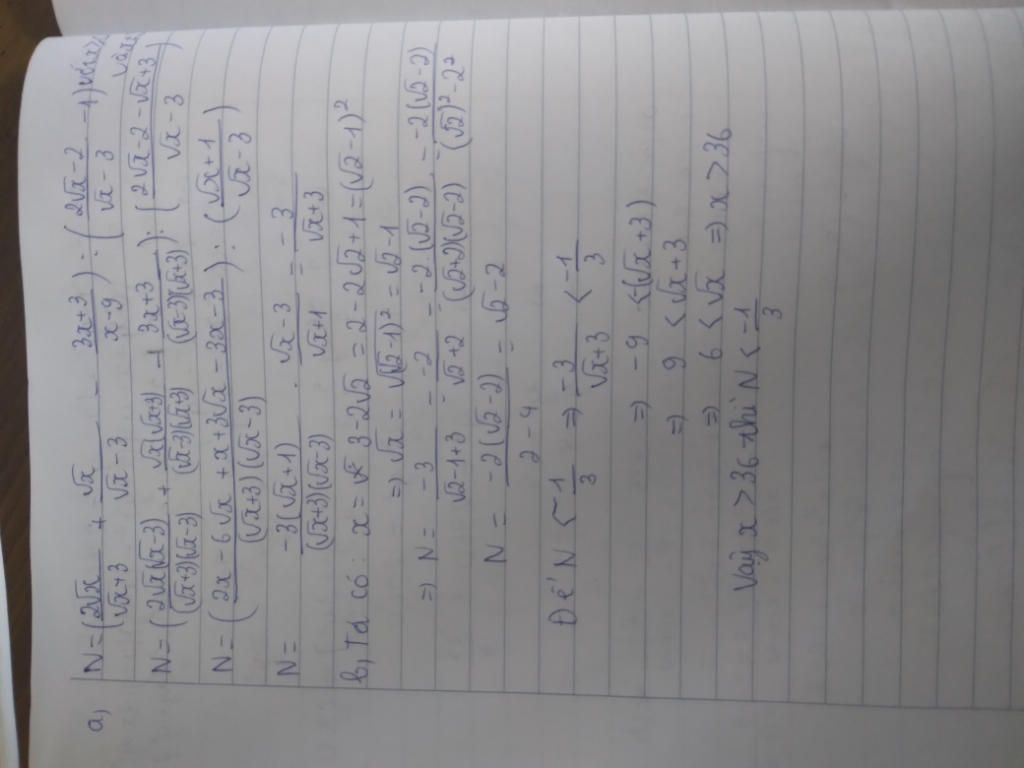 a, N = (2√x/(√x+3) + √x/(√x-3) - (3x+3)/(x-9)) : ((2√x-2)/(√x-3) - 1)
N = (2√x(√x-3)/((√x+3)(√x-3)) + √x(√x+3)/((√x-3)(√x+3)) - (3x+3)/((√x-3)(√x+3))) : ((2√x-2-√x+3)/(√x-3))
N = ((2x-6√x+x+3√x-3x-3)/((√x+3)(√x-3))) : ((√x+1)/(√x-3))
N = -3(√x+1)/((√x+3)(√x-3)) . (√x-3)/(√x+1) = -3/(√x+3)
b, Ta có: x = 3-2√2 = 2-2√2+1 = (√2-1)²
=> √x = √(√2-1)² = √2-1
=> N = -3/(√2-1+3) = -2/(√2+2) = -2.(√2-2)/((√2+2)(√2-2)) = -2(√2-2)/((√2)²-2²)
N = -2(√2-2)/(2-4) = √2-2
Để N < -1/3 => -3/(√x+3) < -1/3
=> -9 < (√x+3)
=> 9 < √x+3
=> 6 < √x => x > 36
Vậy x > 36 thì N < -1/3